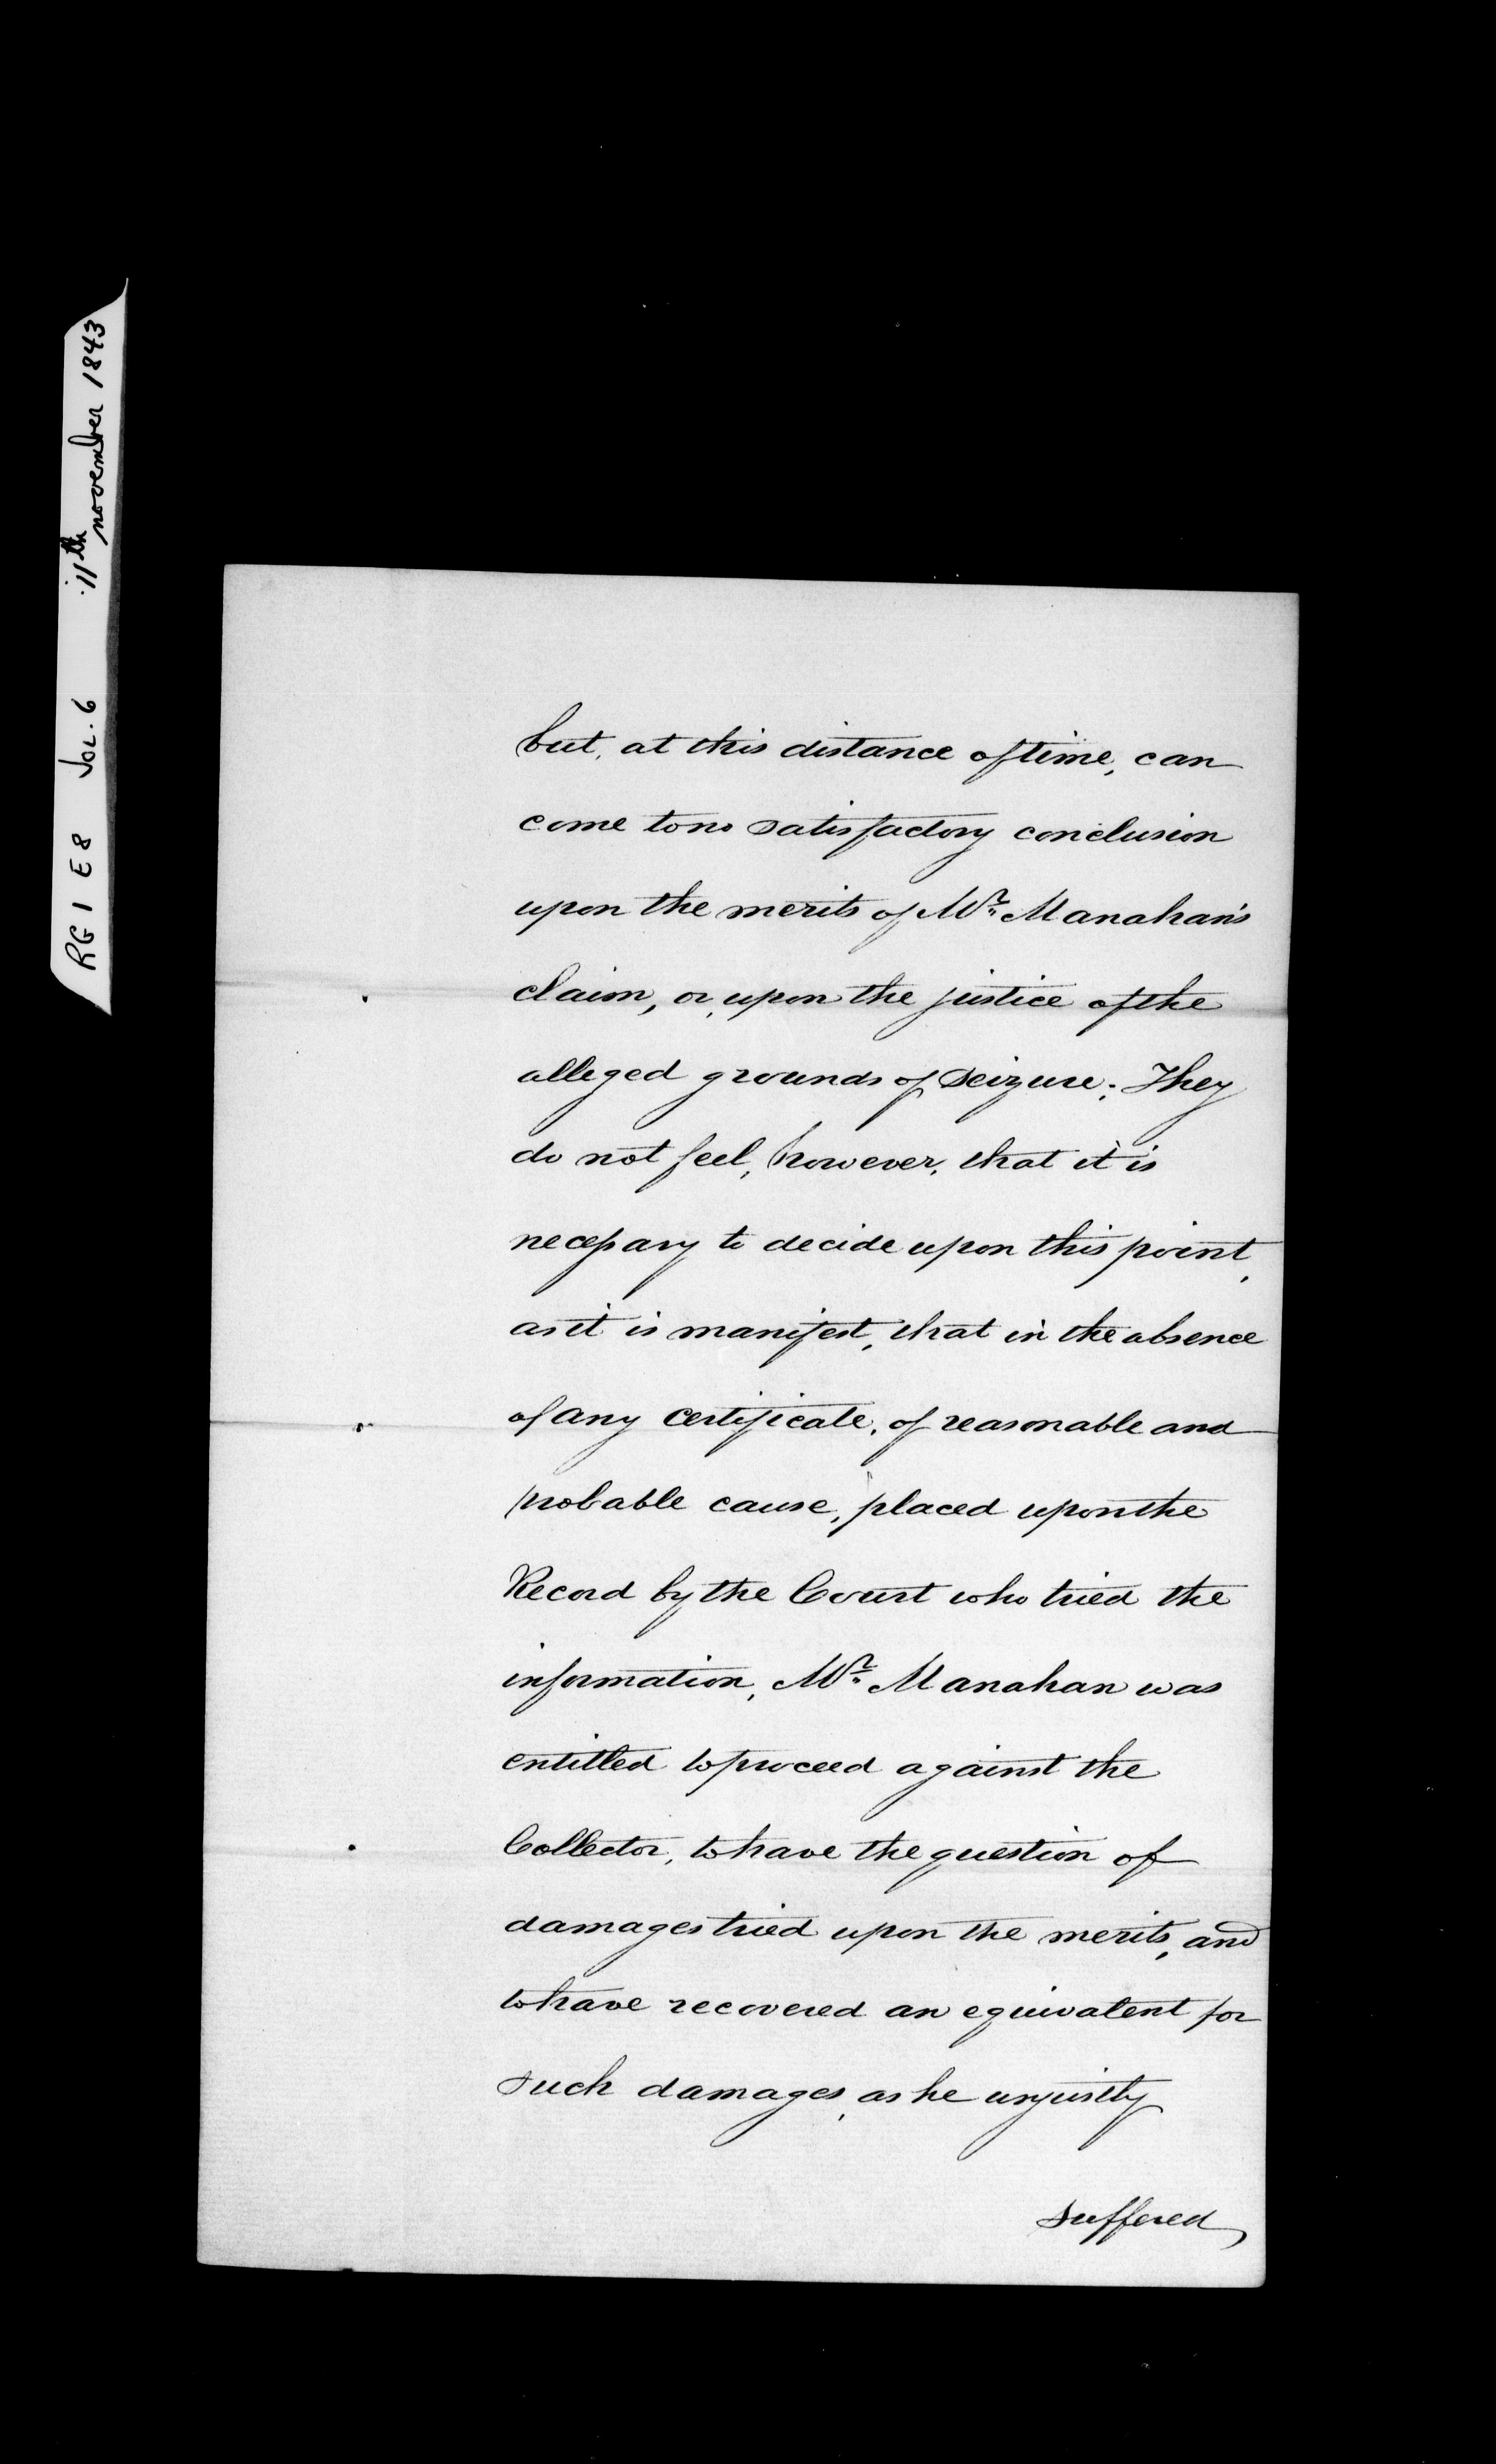 RG 1 E 8 Vol. 6 11th november 1843
but, at this distance of time, can
come to no satisfactory conclusion
upon the merits of Mr. Manahan's
claim, or, upon the justice of the
alleged grounds of Seizure; They
do not feel, however, that it is
necessary to decide upon this point,
as it is manifest, that in the absence
of any certificate, of reasonable and
probable cause, placed upon the
Record by the Court who tried the
information, Mr. Manahan was
entitled to proceed against the
Collector, to have the question of
damages tried upon the merits, and
to have recovered an equivalent for
such damages, as he unjustly
suffered,